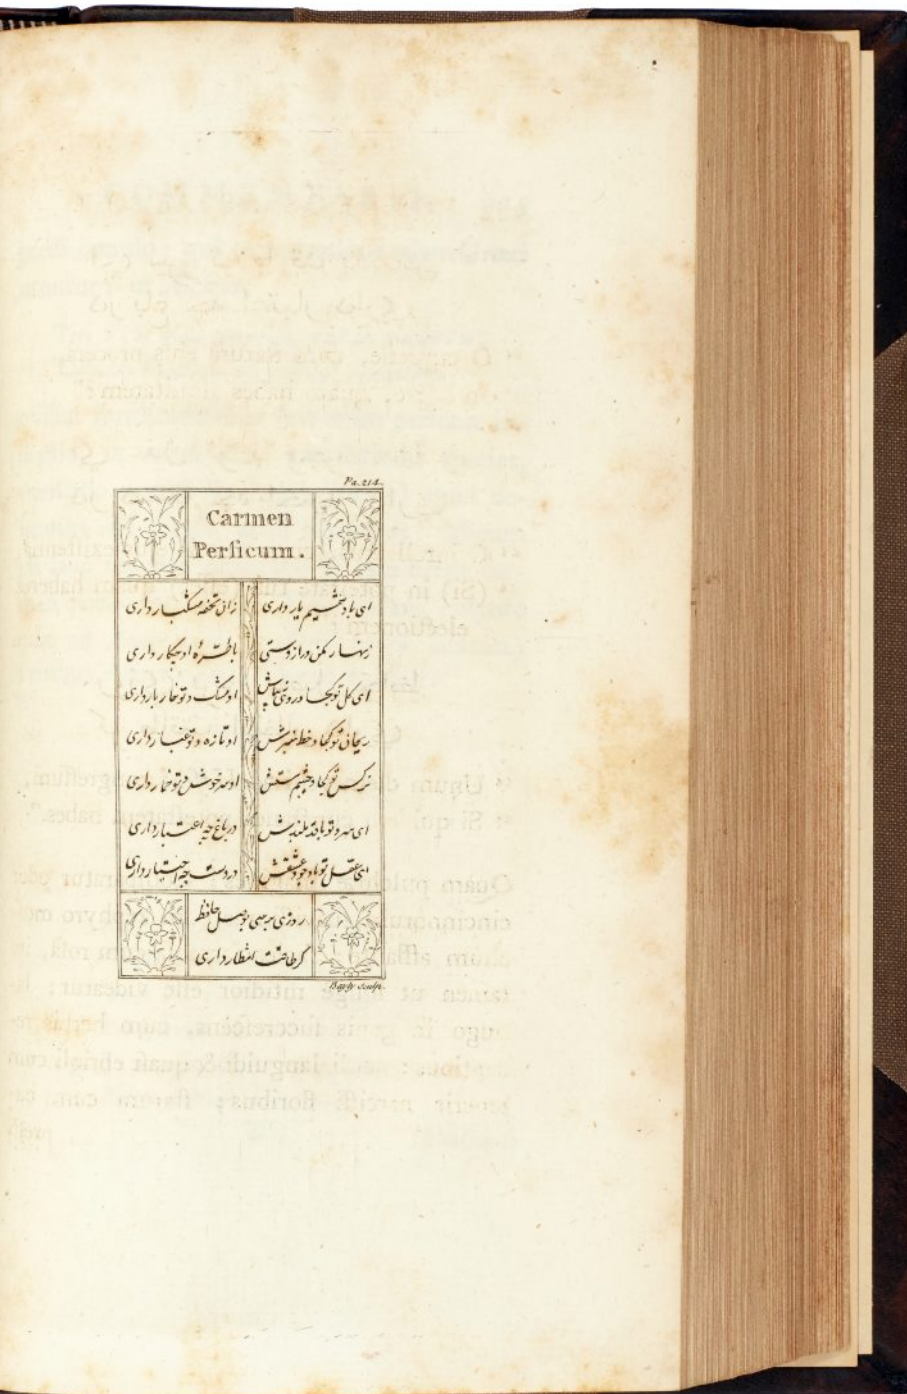 Pa. 214.
Carmen
Persicum.
ای باد نسیم یار داری زان نفحه مشکبار داری
زنهار مکن دراز دستی با طرۀ او چکار داری
ای کل تو کجا و روی زیباش او مشک و تو خار بار داری
ریحان تو کجا و خط سبزش او تازه و تو غبار داری
نرکس تو کجا و چشم مستش او سر خوش و تو خمار داری
ای سرو تو با قد بلندش در باغ چه اعتبار داری
ای عقل تو با وجود عشقش در دست چه اختیار داری
روزی برسی بوصل حافظ
کر طاقت انتظار داری
sculp.